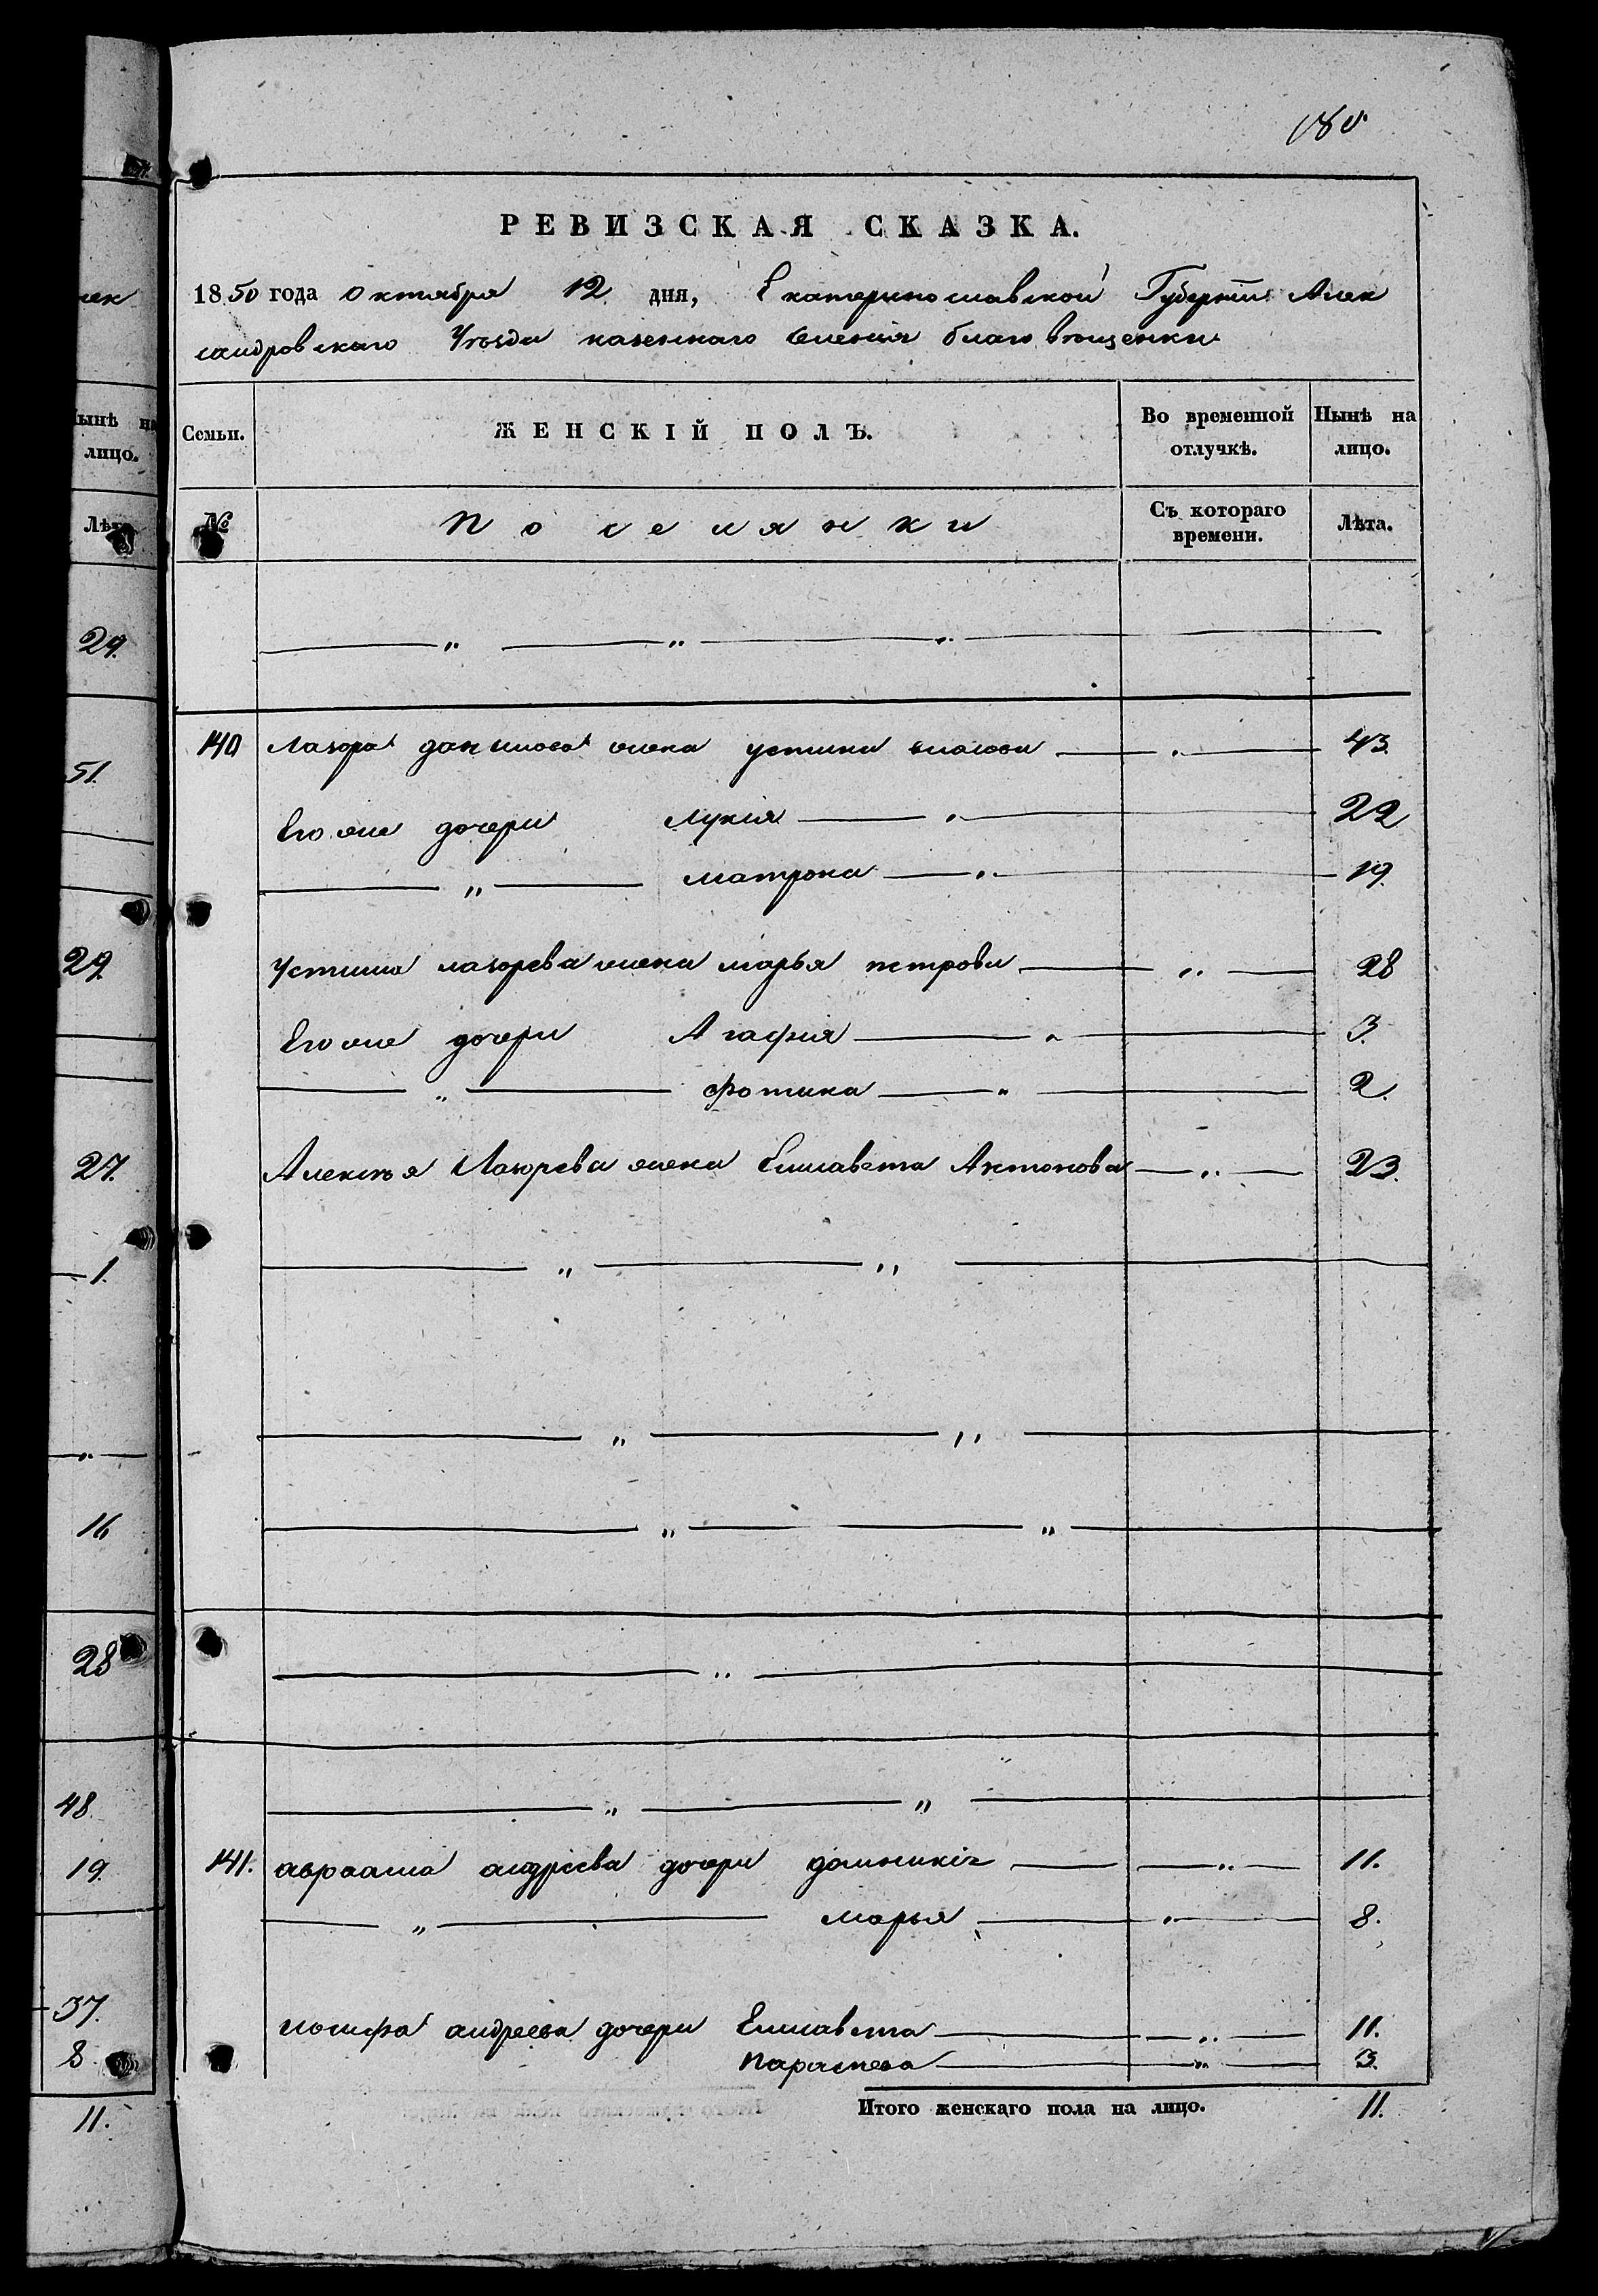 180
РЕВИЗСКАЯ СКАЗКА.
1850 года Октября 12 дня, Екатеринославской Губернии Алек
сандровскаго Уѣзда казеннаго селенія благовѣщенки
Семьи. ЖЕНСКІЙ ПОЛЪ. Во временной отлучкѣ. Нынѣ на лицо.
№ Поселянки Съ котораго времени. Лѣта.
140 Лазора данилова жена устина власова 43.
Его же дочери Лукія 22
" матрона 19.
Устина лазорева жена марья петрова 28
Его же дочери Агафія 3.
" фотина 2.
Алексѣя Лазорева жена Елисавета Антонова 23.
141. авраама андреева дочери домникія 11.
" марья 8.
иосифа андреева дочери Елисавета 11.
параскева 3.
Итого женскаго пола на лицо. 11.
лек
Нынѣ на
лицо.
Лѣта
29.
51.
29
27.
1.
16
28
48.
19.
37.
8.
11.